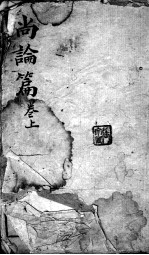 尚論篇 卷上